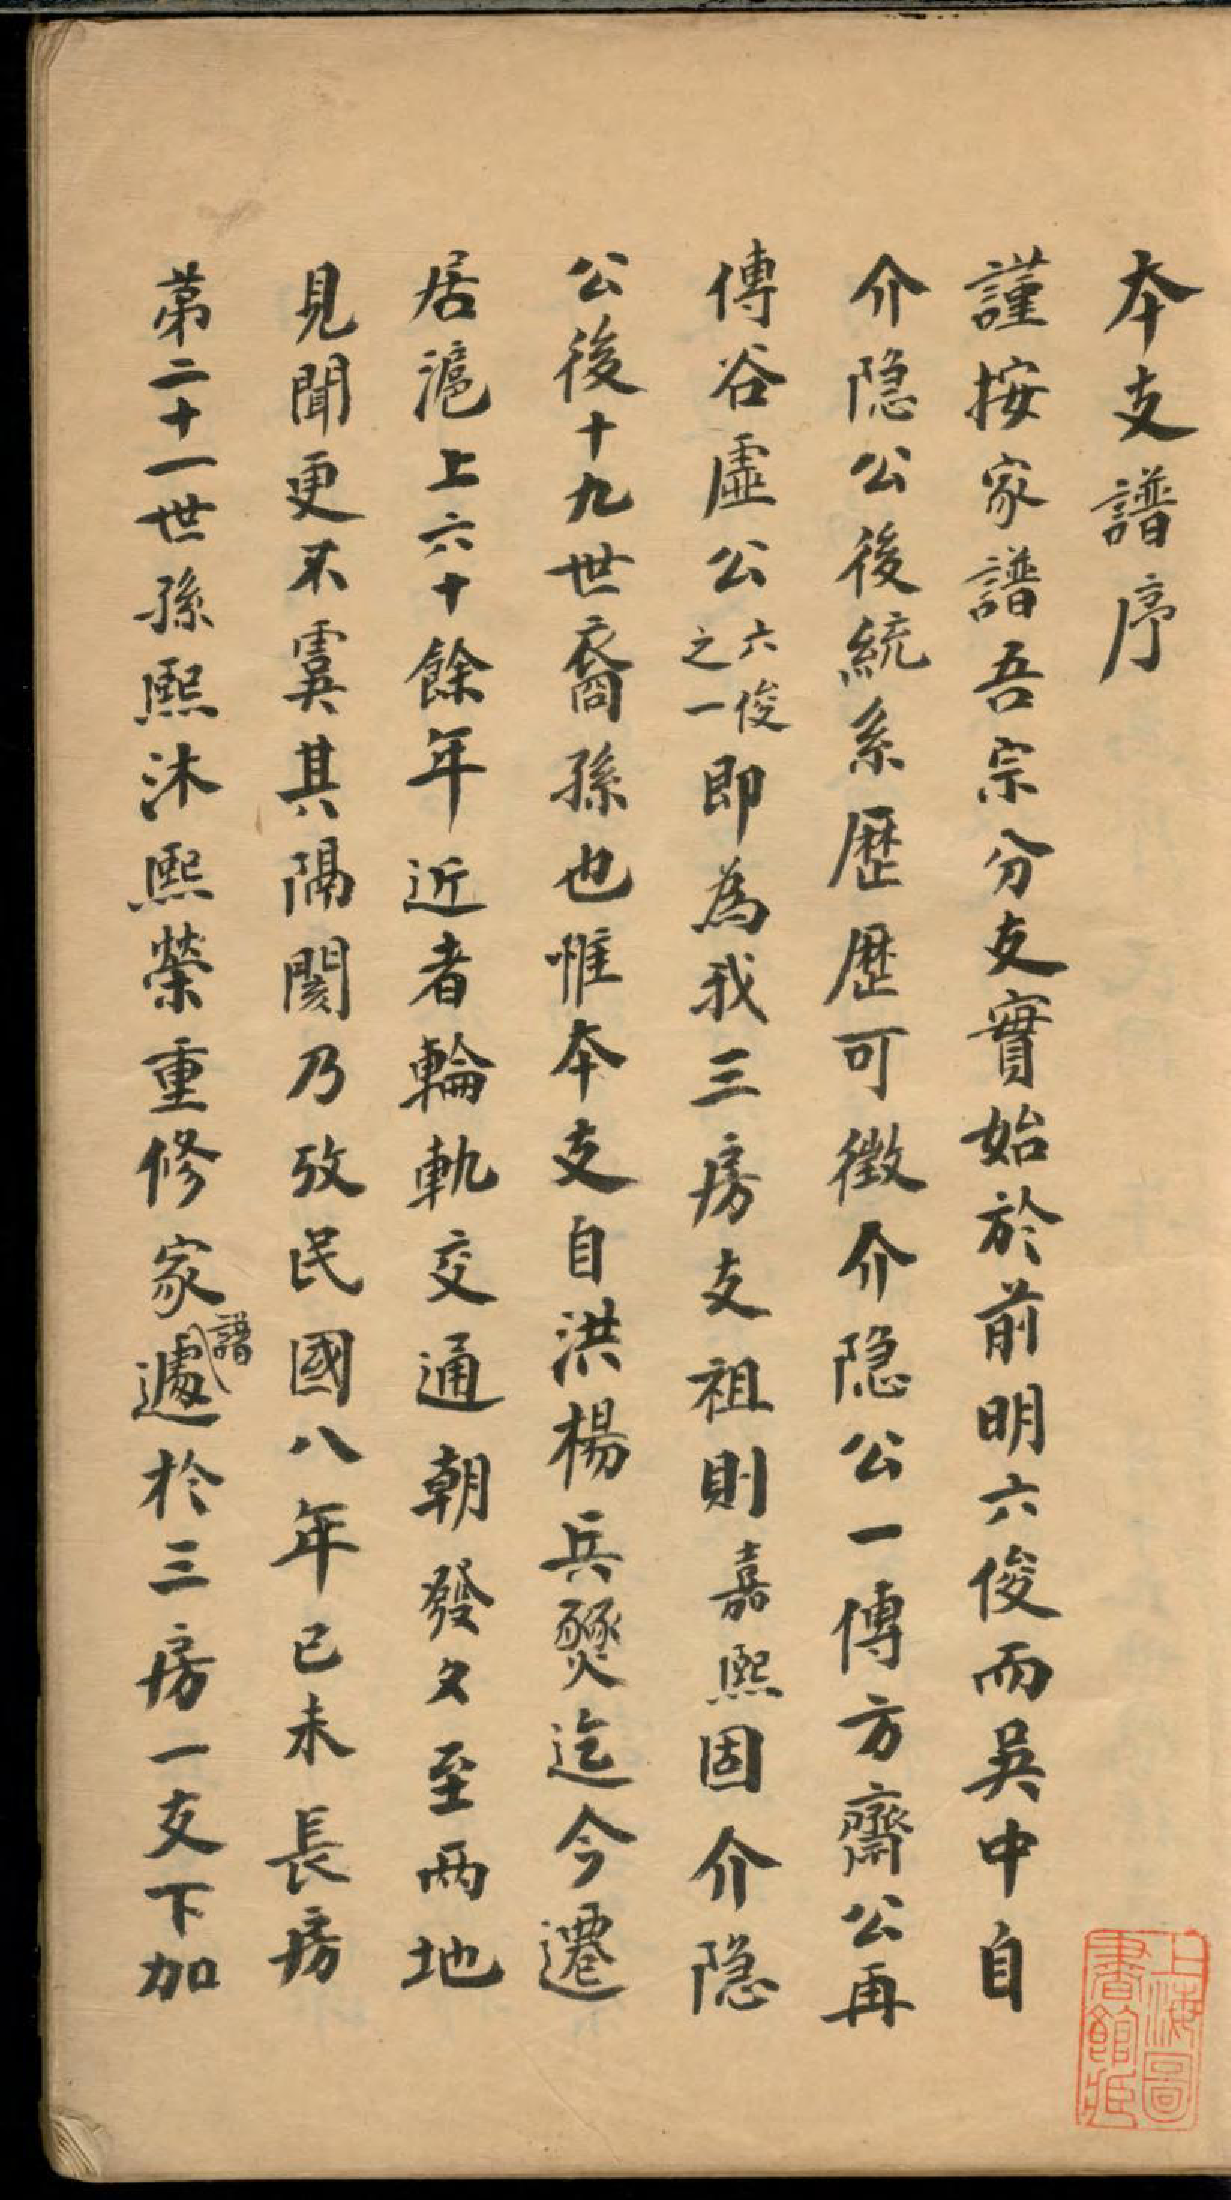 本支譜序
謹按家譜吾宗分支實始於前明六俊而吳中自
介隐公後統系歷歷可徵介隐公一傳方齋公再
傳谷虛公六俊之一即為我三房支祖則嘉熙固介隐
公後十九世裔孫也惟本支自洪楊兵燹迄今遷
居滬上六十餘年近者輪軌交通朝發夕至兩地
見聞更不虞其隔閡乃攷民國八年己未長房
第二十一世孫熙沐熙榮重修家譜遽於三房一支下加
上海圖
書館藏